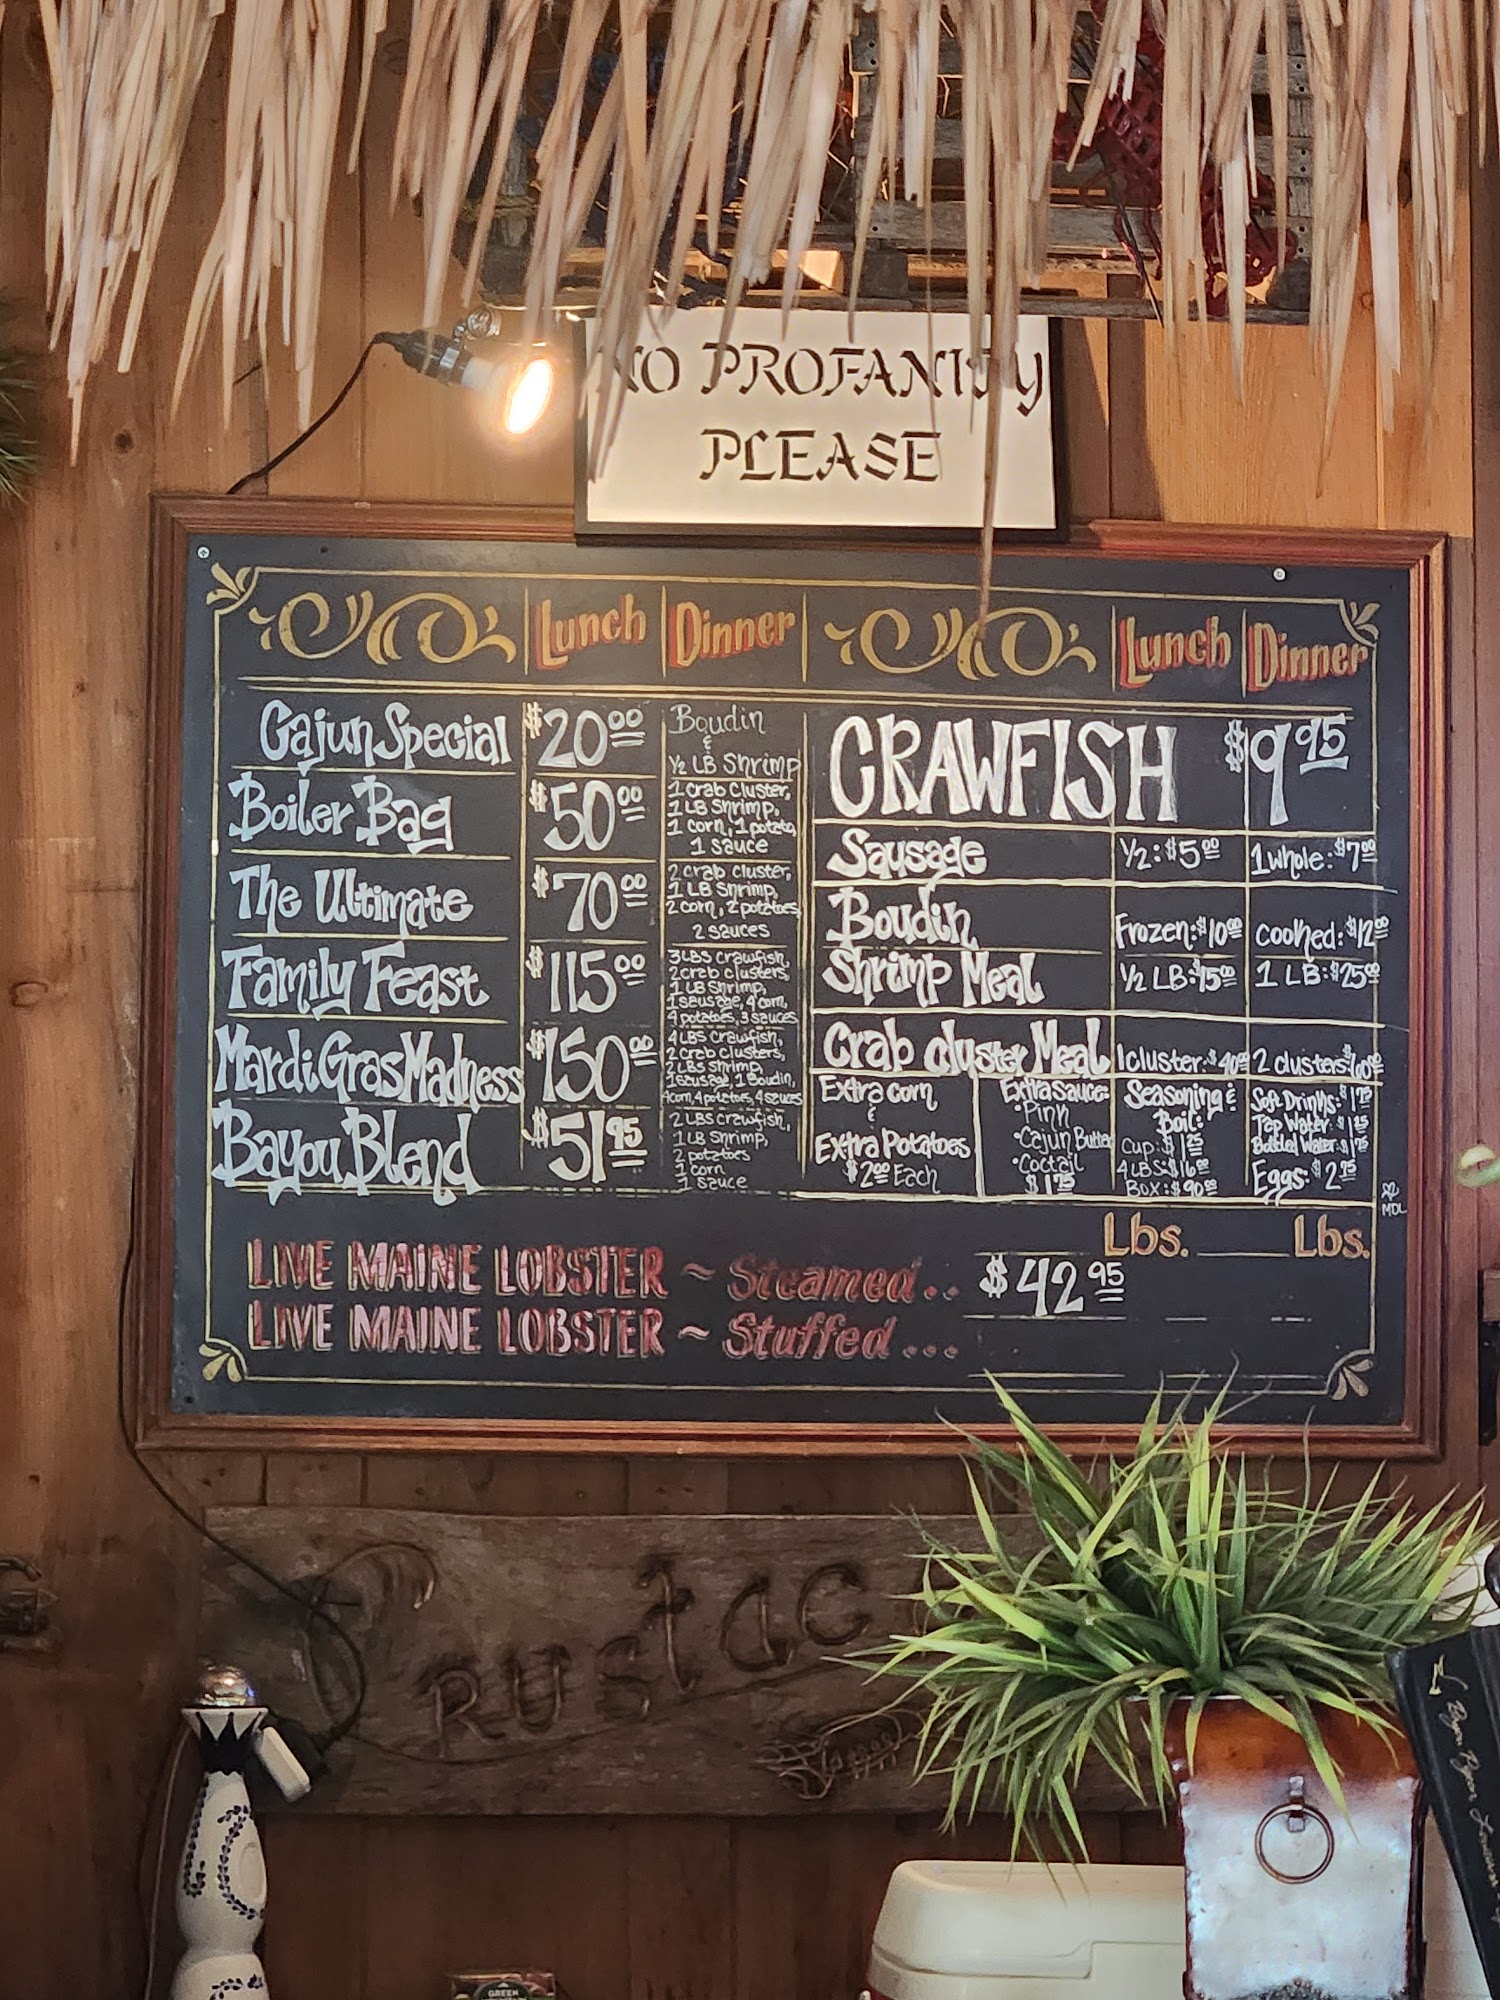 NO PROFANITY
PLEASE
Lunch Dinner Lunch Dinner
Cajun Special $20.00 Boudin
&
1/2 LB Shrimp
Boiler Bag $50.00 1 Crab Cluster,
1 LB Shrimp,
1 corn, 1 potato,
1 sauce
The Ultimate $70.00 2 crab cluster,
1 LB Shrimp,
2 corn, 2 potatoes,
2 sauces
Family Feast $115.00 3 LBS Crawfish,
2 crab clusters,
1 LB Shrimp,
1 sausage, 4 corn,
4 potatoes, 3 sauces
Mardi Gras Madness $150.00 4 LBS Crawfish,
2 Crab Clusters,
2 LBS Shrimp,
1 sausage, 1 Boudin,
4 corn, 4 potatoes, 4 sauces
Bayou Blend $51.95 2 LBS crawfish,
1 LB Shrimp,
2 potatoes
1 corn
1 sauce
CRAWFISH $9.95
Sausage 1/2: $5.00 1 whole: $7.00
Boudin Frozen: $10.00 cooked: $12.00
Shrimp Meal 1/2 LB: $15.00 1 LB: $25.00
Crab Cluster Meal 1 cluster: $40.00 2 clusters: $100.00
Extra corn
&
Extra Potatoes
$2.00 Each
Extra Sauce:
•Pink
•Cajun Butter
•Coctail
$1.75
Seasoning &
Boil:
Cup: $1.25
4 LBS: $16.00
BOX: $90.00
Soft Drinks: $1.75
Tap Water:
Bottled Water: $1.75
Eggs: $2.75
MDL
Lbs. Lbs.
LIVE MAINE LOBSTER ~ Steamed.. $42.95
LIVE MAINE LOBSTER ~ Stuffed...
GREEN